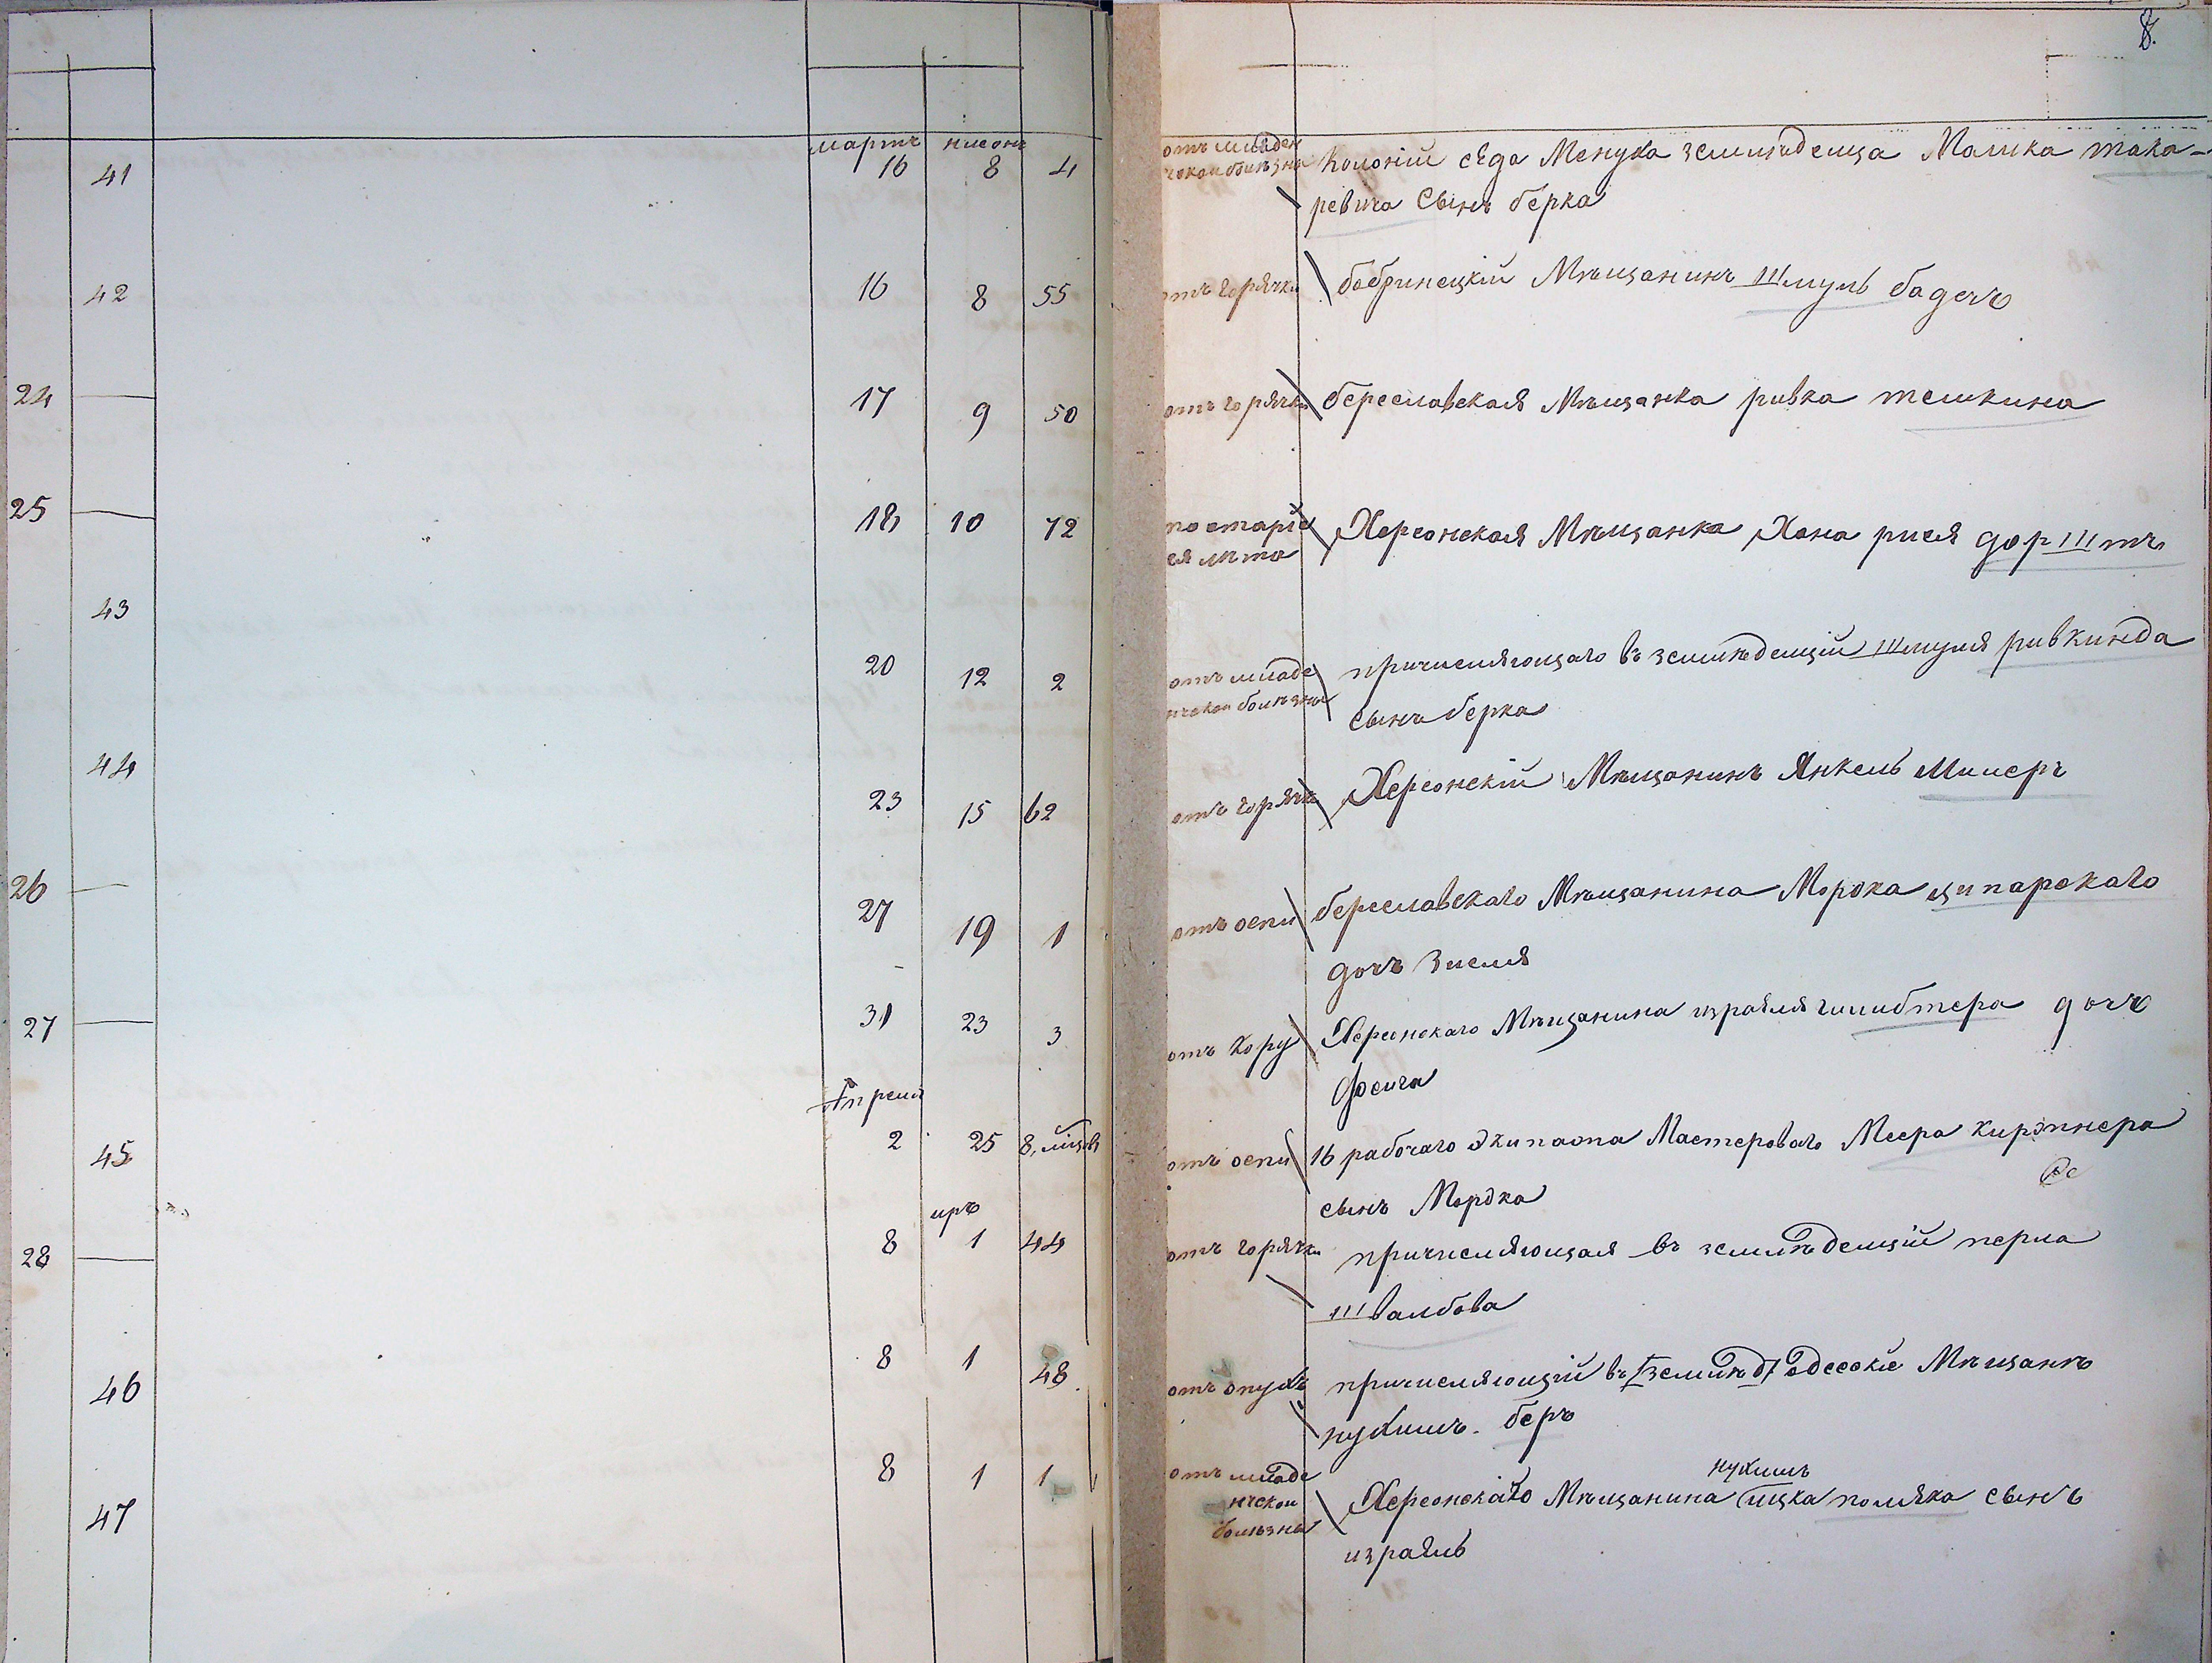 8.
мартъ нисонъ
41 16 8 4
отъ младен
ческой болѣзни
Колонiи сѣдо Менуха земледелца Малика така-
ревича Сынъ берка
42 16 8 55
отъ горячки
бобринецкiй Мѣщанинъ Шмуль бадеръ
24 — 17 9 50
отъ горячки
береславская Мѣщанка ривка теликина
25 — 18 10 72
по старiе
ея лѣта
Херсонская Мѣщанка Хана рися дорштъ
43 20 12 2
отъ младе
нческой болѣзни
причисляющаго въ земледелцiи Шмуля ривкинда
сынъ берка
44 23 15 62
отъ горячки
Херсонскiй Мѣщанинъ Янкель Милеръ
26 — 27 19 1
отъ оспи
береславскаго Мѣщанина Мордка ципарскаго
дочъ Зисля
27 — 31 23 3
отъ кору
Херсонскаго Мѣщанина израиля
дочъ
фейга
Апреля
45 2 25 8,
отъ оспи
16 рабочаго Экипажа Мастероваго Меера кирпнера
сынъ Мордка
иръ
28 — 8 1 44
отъ горячки
причисляющая въ земледелцiи перла
Швалбова
46 8 1 48
отъ опухъ
причисляющiй въ [землед] Одесскiе Мѣщанъ
нухимъ беръ
47 8 1 1
отъ младе
нческой
болѣзни
нухимъ
Херсонскаго Мѣщанина ицка поляка сынъ
израиль